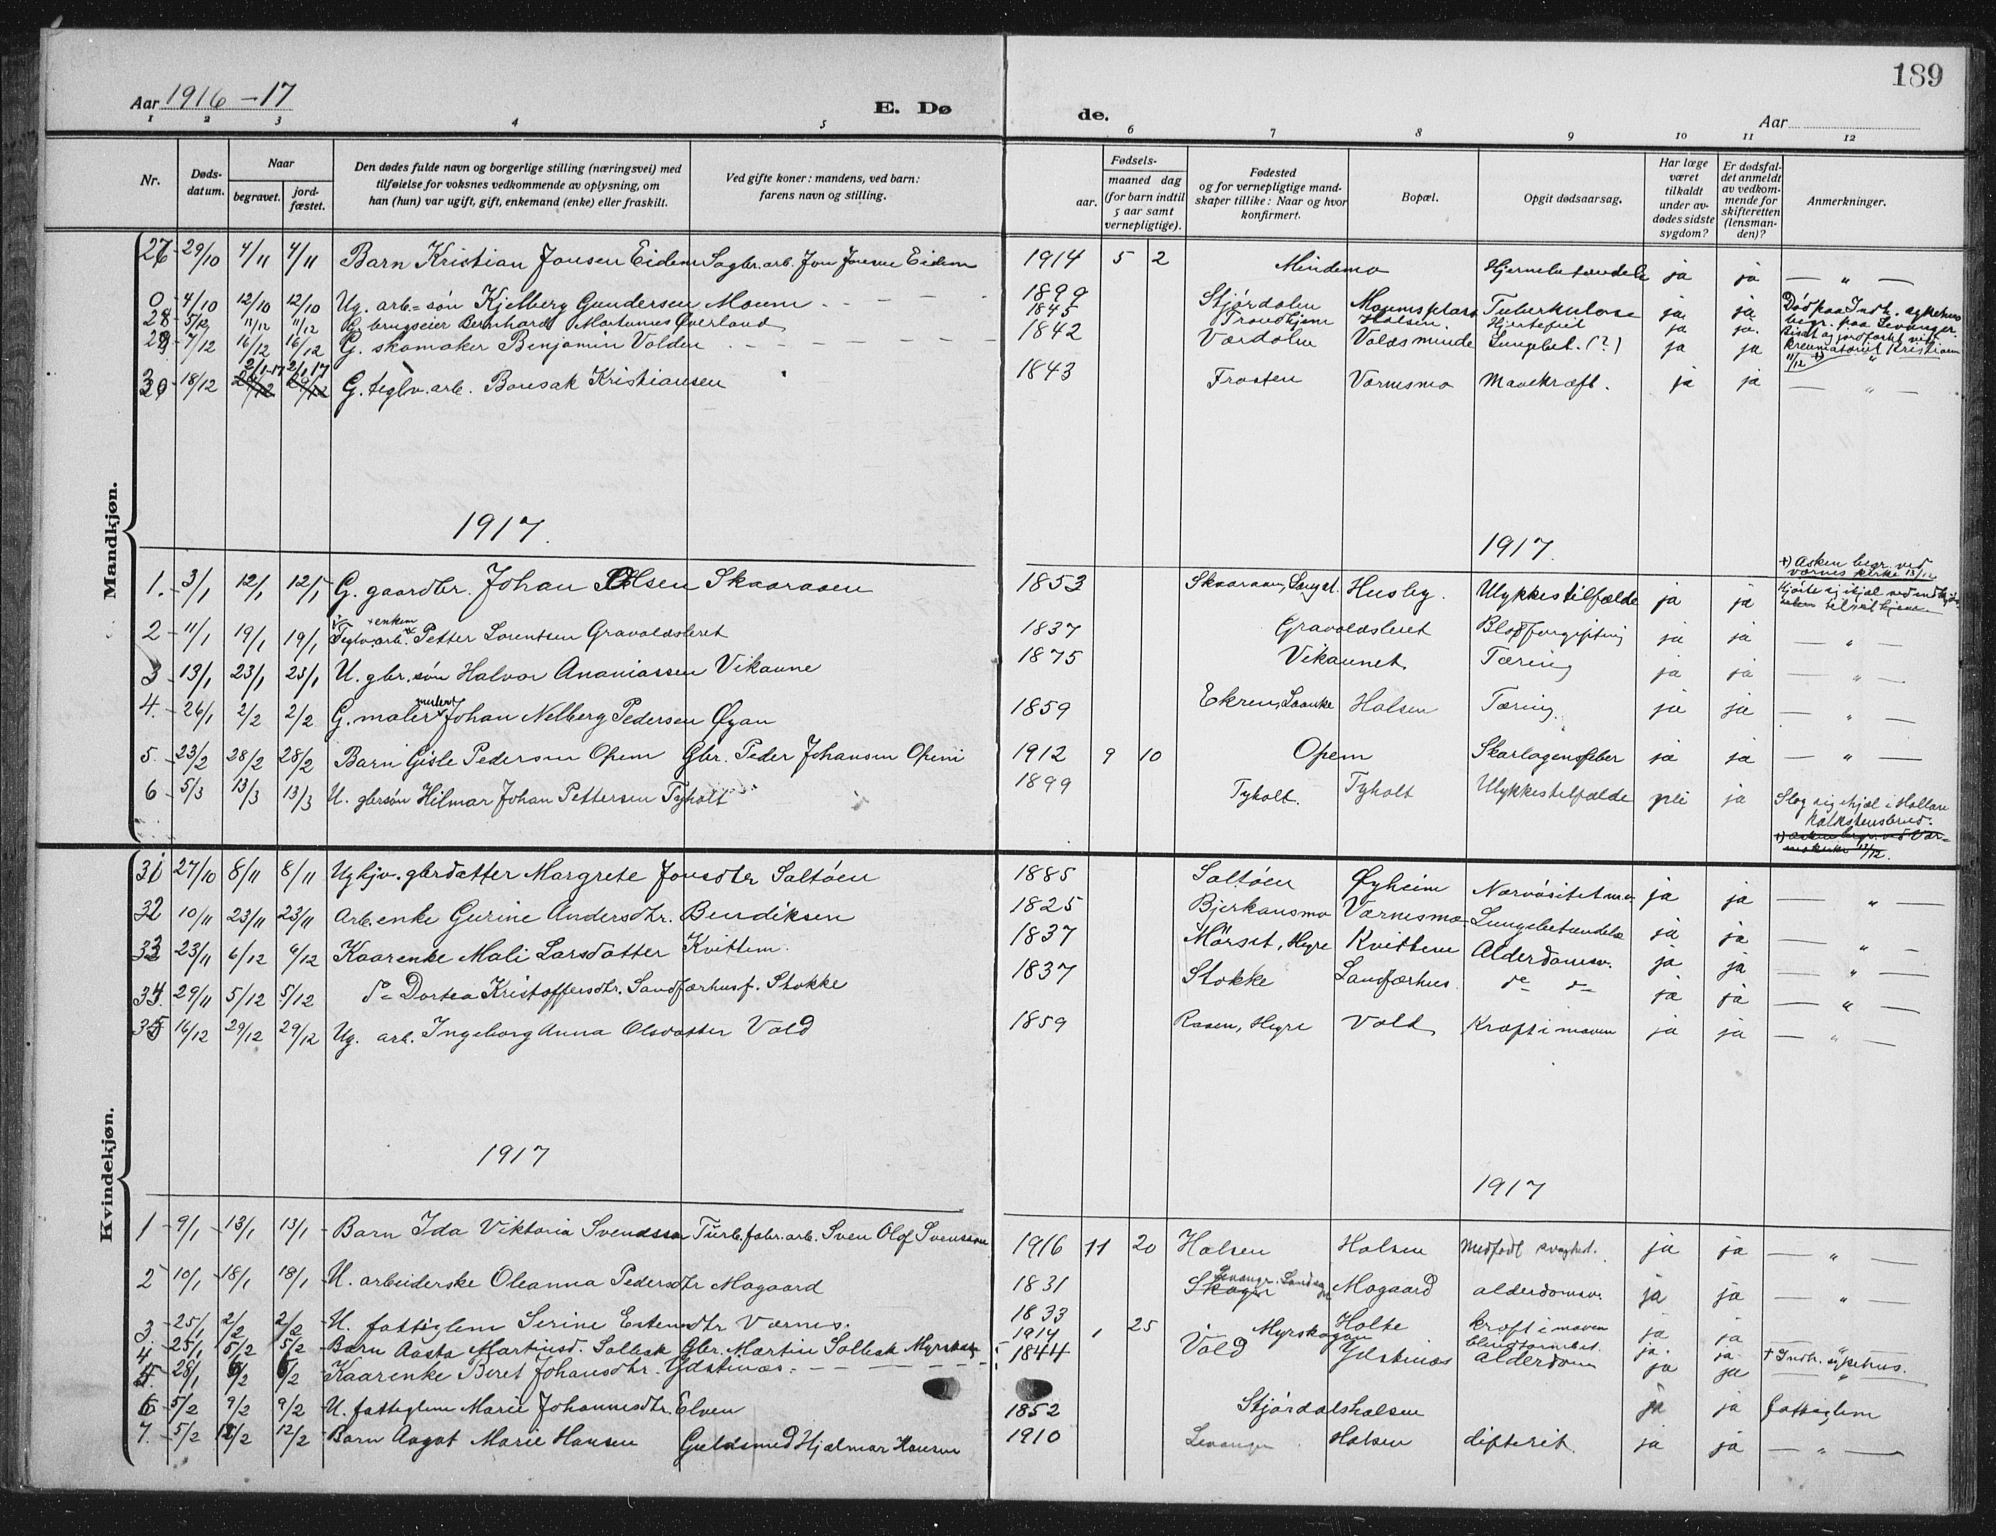 189
Aar 1916-17
E. Døde.
Aar
1 2 3 4 5 6 7 8 9 10 11 12
Nr.
Døds-datum.
Naar
begravet.
jord-fæstet.
Den dødes fulde navn og borgerlige stilling (næringsvei) med
tilføielse for voksnes vedkommende av oplysning, om
han (hun) var ugift, gift, enkemand (enke) eller fraskilt.
Ved gifte koner: mandens, ved barn:
farens navn og stilling.
Fødsels-
aar. maaned dag
(for barn indtil
5 aar samt
vernepligtige).
Fødested
og for vernepligtige mand-
skaper tillike: Naar og hvor
konfirmert.
Bopæl.
Opgit dødsaarsag.
Har læge
været
tilkaldt
under av-
dødes sidste
sygdom?
Er dødsfal-
det anmeldt
av vedkom-
mende for
skifteretten
(lensman-
den)?
Anmerkninger.
Mandkjøn.
27 29/10 4/11 4/11 Barn Kristian Jonsen Eidem Sagbr.arb. Jon Jonsen Eidem 1914 5 2 Mindemo Hjernebetændelse ja ja — " —
0 4/10 12/10 12/10 Ug. arb.=søn Kjelberg Gundersen Moum 1899 Stjørdalen Moumsplass Tuberkulose ja ja Død paa Indh. sykehus begr. paa Levanger
28 5/12 11/12 11/12 G. brugseier Bernhard Martinus Øverland 1845 Trondhjem Halsen. Hjertefeil ja ja.
29 7/12 16/12 16/12 G. skomaker Benjamin Volden 1842 Værdalen Voldsminde Lungebet. (?) ja ja "
30 18/12 2/1-17 2/1 17 G. teglv.arb. Bonsak Kristiansen 1843 Frosten Værnesmo Mavekræft. ja ja — " —
1917.
1917.
1. 3/1 12/1 12/1 G. gaardbr. Johan Olsen Skaaraaen 1853 Skaaraaen, Husby. Ulykkestilfælde ja ja
+) Asken begr. ved Værnes kirke 13/12
2 11/1 19/1 19/1 Teglv.arb. enkem Petter Lorentsen Gravaldsleret 1837 Gravaldsleret Blodforgiftning ja ja — " —
3 13/1 23/1 23/1 U. gbr. søn Halvor Ananiassen Vikaune 1875 Vikaunet Tæring ja ja — " —
4. 26/1 2/2 2/2 G. maler Johan Nelberg Pedersen Øyan 1859 Ekren, Laanke Halsen Tæring. ja ja — " —
5. 23/2 28/2 28/2 Barn Gisle Pedersen Opem Gbr. Peder Johansen Opem 1912 9 10 Opem Skarlagensfeber ja ja — " —
6 5/3 13/3 13/3 U. gbrsøn Hilmar Johan Pettersen Tyholt 1899 Tyholt. Tyholt Ulykkestilfælde ja Slog sig ihjæl i Kalkstensbrud.
Kvindekjøn.
31 27/10 8/11 8/11 Ug hjv. gbrdatter Margrete Jonsdtr Saltøen 1885 Saltøen Øyheim ja ja — " —
32 10/11 23/11 23/11 Arb.enke Gurine Andersdtr. Bendiksen 1825 Bjerkansmo Værnesmo Lungebetændelse ja ja — " —
33 23/11 6/12 6/12 Kaarenke Mali Larsdatter Kvittem. 1837 Mørset, Hegre Kvittem Alderdomsv. ja ja — " —
34 29/11 5/12 5/12 do Dortea Kristoffersdtr. Sandfærhusf. Stokke 1837 Stokke Sandfærhus. do do ja ja — " —
35 16/12 29/12 29/12 Ug. arb. Ingeborg Anna Olsdatter Vold 1859 Raaen, Hegre Vold Kræft i maven ja ja — " —
1917
1917
1 9/1 13/1 13/1 Barn Ida Viktoria Svendssen Turb.fabr.arb. Sven Olof Svensson 1916 11 20 Halsen Halsen Medfødt svaghed. ja ja — " —
2 10/1 18/1 18/1 U. arbeiderske Oleanna Pedersdtr Mogaard 1831 Mogaard alderdomsv. ja ja — " —
3. 25/1 2/2 2/2 U. fattiglem Serine Estensdtr Værnes. 1833 Holte kræft i maven ja ja
4. 25/1 5/2 5/2 Barn Aasta Martinsd. Solbak Gbr. Martin Solbak Myrskog 1914 1 25 Myrskogan ja. ja. + Indh. sykehus.
5. 28/1 6/2 6/2 Kaarenke Beret Johansdtr. Ydstines. 1844 Vold Ydstines Alderdom ja ja "
6 5/2 9/2 9/2 U. fattiglem Marie Johannesdtr. Elven 1852 Stjørdalshalsen ja ja Fattiglem
7. 5/2 12/2 12/2 Barn Aagot Marie Hansen Guldsmed Hjalmar Hansen 1910 Levanger Halsen difterit. ja ja — " —